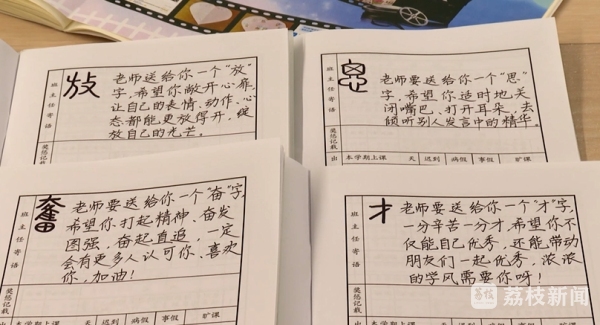 班主任寄语
放
老师送给你一个“放”
字,希望你敞开心扉,
让自己的表情、动作、心
态都能更放得开,绽
放自己的光芒。
奖惩记载
出 本学期上课 天 迟到 病假 事假 旷课
班主任寄语
思
老师要送给你一个“思”
字,希望你适时地关
闭嘴巴、打开耳朵,去
倾听别人发言中的精华。
奖惩记载
出 本学期上课 天 迟到 病假 事假 旷课
班主任寄语
奮
老师要送给你一个“奋”字,
希望你打起精神,奋发
图强,奋起直追,一定
会有更多人认可你、喜欢
你,加油!
奖惩记载
出 本学期上课 天 迟到 病假 事假 旷课
班主任寄语
才
老师要送给你一个“才”字,
一分辛苦一分才,希望你不
仅能自己优秀,还能带动
朋友们一起优秀,浓浓
的学风需要你呀!
奖惩记载
出 本学期上课
荔枝新闻